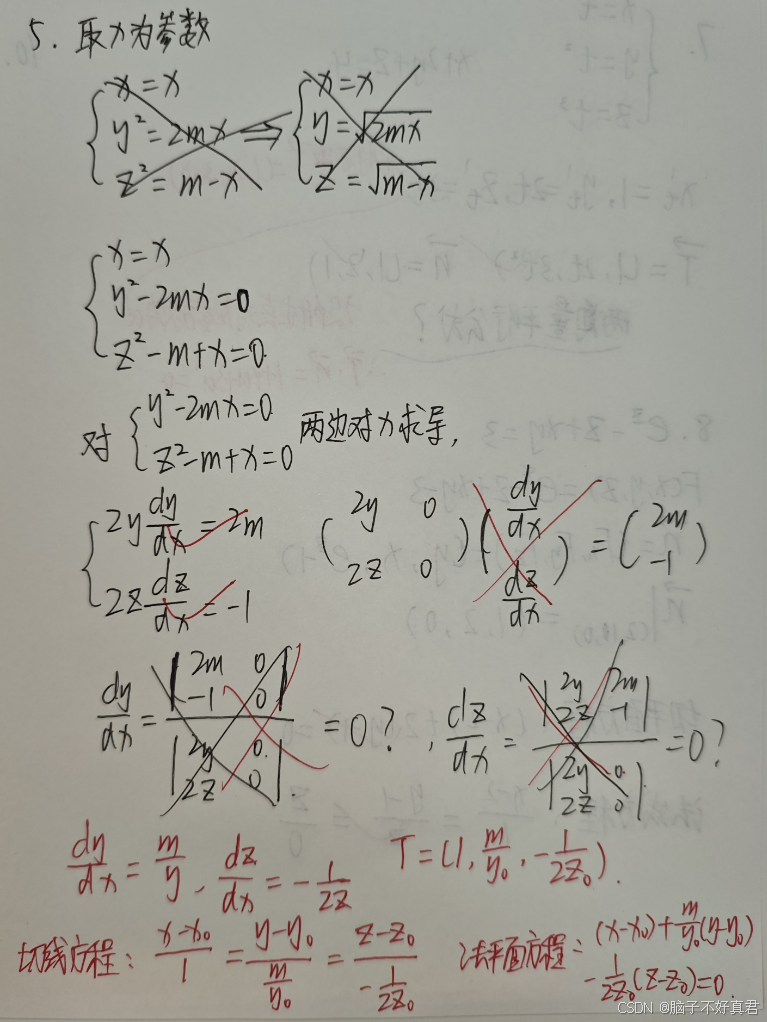 5. 取x为参数
{x=x
y²=2mx
z²=m-x ⇒ {x=x
y=√2mx
z=√m-x
{x=x
y²-2mx=0
z²-m+x=0.
对{y²-2mx=0
z²-m+x=0 两边对x求导,
{2y dy/dx = 2m
2z dz/dx = -1
(2y 0
2z 0)(dy/dx
dz/dx) = (2m
-1)
dy/dx = |2m 0
-1 0| / |2y 0
2z 0| = 0?, dz/dx = |2y 2m
2z -1| / |2y 0
2z 0| = 0?
dy/dx = m/y, dz/dx = -1/2z T=(1, m/y₀, -1/2z₀).
切线方程: x-x₀/1 = y-y₀/(m/y₀) = z-z₀/(-1/2z₀)
法平面方程: (x-x₀)+m/y₀(y-y₀)
-1/2z₀(z-z₀)=0.
CSDN @脑子不好真君